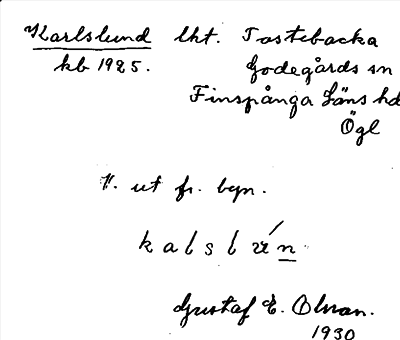 Karlslund lht. Tostebacka
kb 1925. Godegårds sn
Finspånga Läns hd
Ögl
V. ut fr. byn.
kalslún
Gustaf E. Olsson.
1930